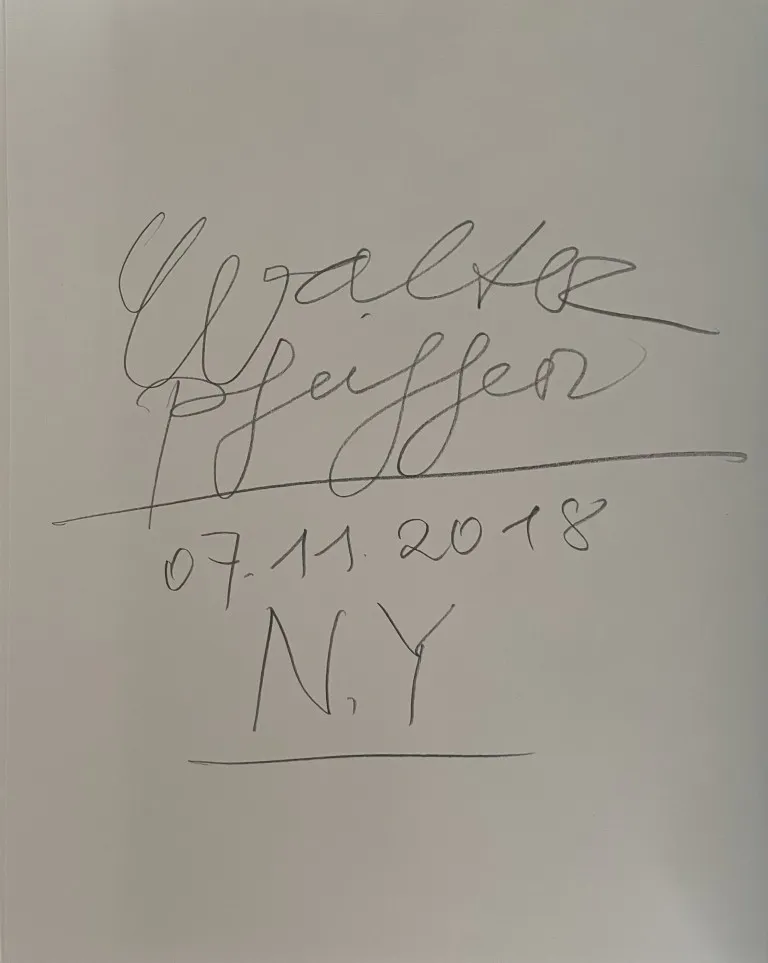 Walter
Pfeiffer
07.11.2018
N.Y